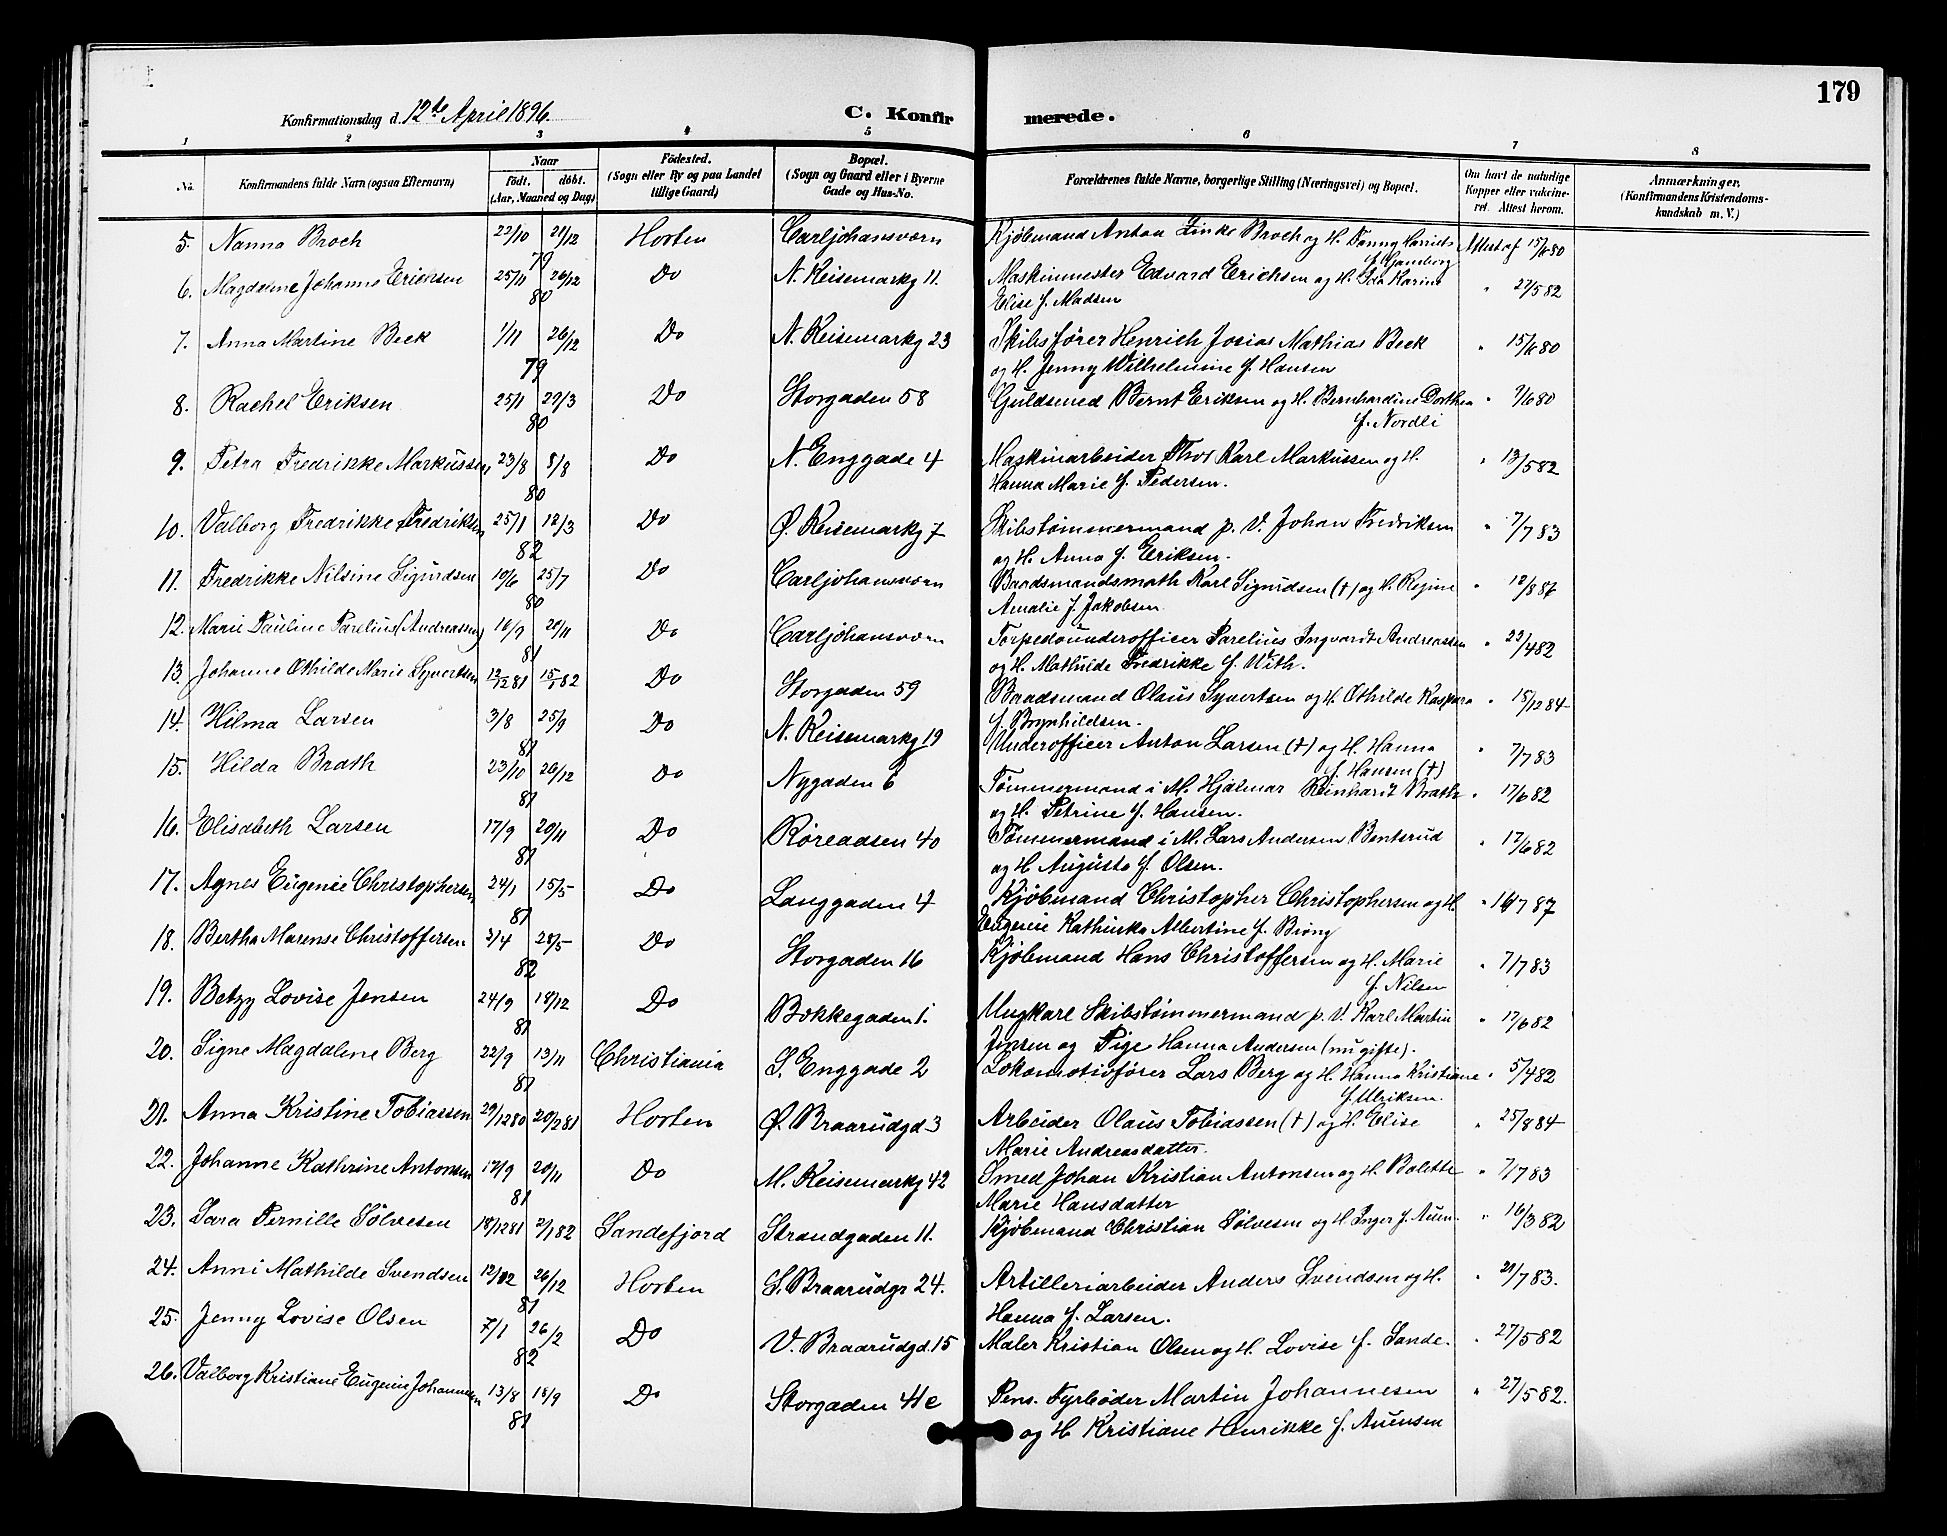 179
Konfirmationsdag d. 12te April 1896.
C. Konfirmerede.
1 2 3 4 5 6 7 8
No. Konfirmandens fulde Navn (ogsaa Efternavn) Naar födt. döbt. (Aar, Maaned og Dag) Födested. (Sogn eller By og paa Landet tillige Gaard) Bopæl. (Sogn og Gaard eller i Byerne Gade og Hus-No. Forældrenes fulde Navne, borgerlige Stilling (Næringsvei) og Bopæl. Om havt de naturlige Kopper eller vakcineret. Attest herom. Anmærkninger, (Konfirmandens Kristendomskundskab m. V.)
5. Nanna Broch 22/10 21/12 79 Horten Carljohansværn Kjøbmand Anton Zinke Broch og H. Fanny Harriet Attest af 15/6 80
6. Magdalene Johanne Erichsen 25/11 26/12 80 Do N. Keisemarkg 11. Maskinmester Edvard Erichsen og H. Ida Karine " 27/5 82
Elise f. Madsen
7. Anna Martine Beck 1/11 26/12 79 Do N. Keisemarkg 23 Skibsfører Henrich Josias Mathias Beck " 15/6 80
og H. Jenny Wilhelmine f. Hansen
8. Rachel Eriksen 25/1 29/3 80 Do Storgaden 58 Guldsmed Bernt Eriksen og H. Bernhardine Dorthea "
f. Nordli
9. Petra Fredrikke Markussen 23/8 8/8 80 Do N. Enggade 4 Maskinarbeider Thor Karl Markussen og H. " 13/5 82
Hanna Marie f. Pedersen.
10. Valborg Fredrikke Fredriksen 25/1 12/3 82 Do Ø. Keisemarkg 7 Skibstømmermand p. V. Johan Fredriksen " 7/7 83
og H. Anna f. Eriksen.
11. Fredrikke Nilsine Sigurdsen 10/6 25/7 80 Do Carljohansværn Baadsmandsmath Karl Sigurdsen (†) og H. Regine " 12/8 86
Amalie f. Jakobsen
12. Marie Pauline Parelius (Andreassen) 16/9 20/11 81 Do Carljohansværn Torpedounderofficer Parelius Ingvardt Andreassen " 23/4 82
og H. Mathilde Fredrikke f. With.
13. Johanne Othilde Marie Syvertsen 12/12 81 15/1 82 Do Storgaden 59 Baadsmand Olaus Syvertsen og H. Othilde Kaspara " 15/12 84
f. Brynhildsen.
14. Hilma Larsen 3/8 25/9 81 Do N. Keisemarkg 19 Underofficer Anton Larsen (†) og H. Hanna " 7/7 83
f. Hansen (†)
15. Hilda Brath 23/10 26/12 81 Do Nygaden 6 Tømmermand i M. Hjalmar Reinhardt Brath " 17/6 82
og H. Petrine f. Hansen.
16. Elisabeth Larsen 17/9 20/11 81 Do Røreaasen 40 Tømmermand i M. Lars Andersen Bentsrud " 17/6 82
og H Augusta f. Olsen.
17. Agnes Eugenie Christophersen 24/1 15/5 81 Do Langgaden 4 Kjøbmand Christopher Christophersen og H. " 14/7 87
Eugenie Kathinka Albertine f. Bröng
18. Bertha Marense Christoffersen 2/4 28/5 82 Do Storgaden 16 Kjøbmand Hans Christoffersen og H. Marie " 7/7 83
f. Nilsen
19. Betzy Lovise Jensen 24/9 18/12 81 Do Bokkegaden 1. Ungkarl Skibstømmermand p. V. Karl Martin " 17/6 82
Jensen og Pige Hanna Andersen (nu gifte).
20. Signe Magdalene Berg 22/9 13/11 81 Christiania S. Enggade 2 Lokomotivfører Lars Berg og H. Hanna Kristiane " 5/4 82
f. Ulriksen.
21. Anna Kristine Tobiassen 29/12 80 20/2 81 Horten Ø. Braarudgd 3 Arbeider Olaus Tobiassen (†) og H. Elise " 25/8 84
Marie Andreasdatter.
22. Johanne Kathrine Antonsen 17/9 20/11 81 Do M. Keisemarkg 42 Smed Johan Kristian Antonsen og H. Bolette " 7/7 83
Marie Hansdatter
23. Sara Pernille Sølvesen 18/12 81 2/1 82 Sandefjord Strandgaden 11. Kjøbmand Christian Sølvesen og H. Inger f. Auen. " 16/3 82
24. Anni Mathilde Svendsen 26/12 81 Horten S. Braarudgr 24. Artilleriarbeider Anders Svendsen og H. " 21/7 83.
Hanna f. Larsen.
25. Jenny Lovise Olsen 7/1 26/2 82 Do V. Braarudgd. 15 Maler Kristian Olsen og H. Lovise f. Sande. " 27/5 82
26. Valborg Kristiane Eugenie Johannesen 13/8 18/9 81 Do Storgaden 41 c Pens. Fyrbøder Martin Johannesen " 27/5 82.
og H Kristiane Henrikke f. Auensen